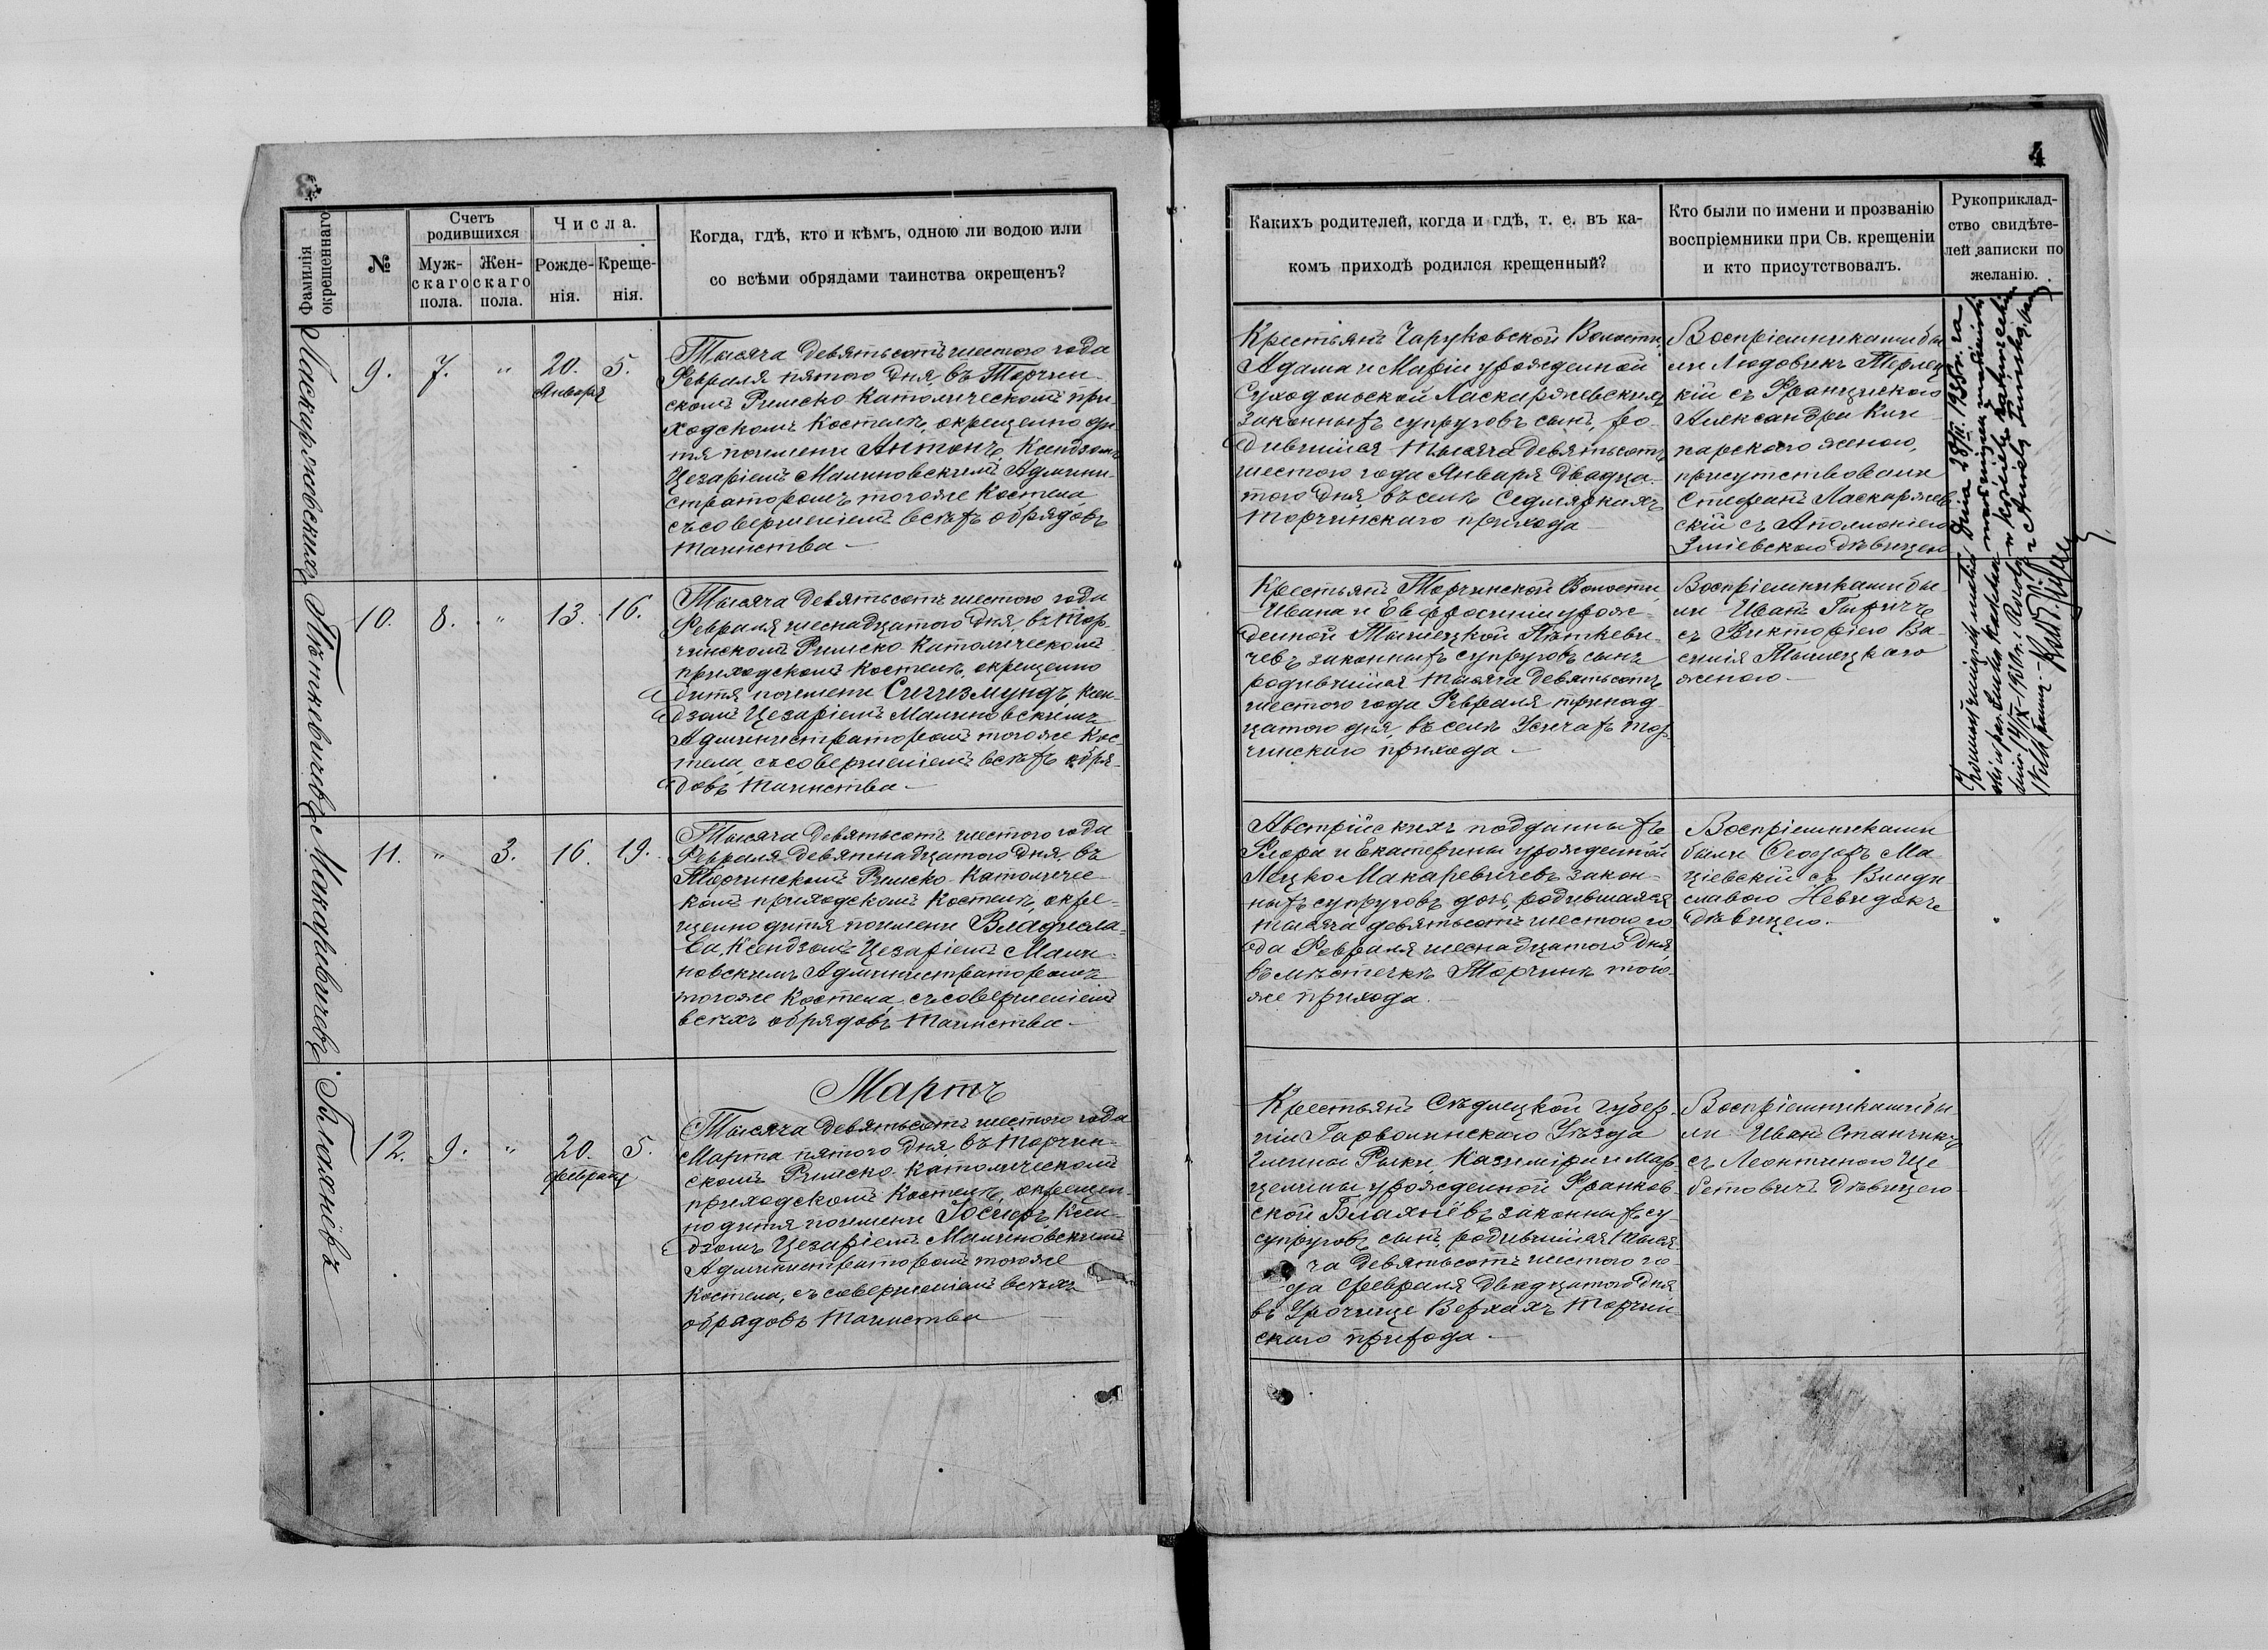 3
Фамилія окрещеннаго.
№
Счетъ родившихся
Муж-
скаго
пола.
Жен-
скаго
пола.
Числа.
Рожде-
нія.
Креще-
нія.
Когда, гдѣ, кто и кѣмъ, одною ли водою или
со всѣми обрядами таинства окрещенъ?
Ласкаржевскихъ
9.
7.
"
20.
Января
5.
Тысяча девятьсотъ шестого года
Февраля пятого дня, въ Торчин-
скомъ Римско-Католическомъ при-
ходскомъ Костелѣ, окрещено ди-
тя по имени Антонъ, Ксендзомъ
Цезаріемъ Малиновскимъ Админи-
страторомъ тогоже Костела
съ совершеніемъ всѣхъ обрядовъ
таинства
Пѣткевичевъ
10.
8.
"
13.
16.
Тысяча девятьсотъ шестого года
Февраля шеснадцатого дня, въ Тор-
чинскомъ Римско-Католическомъ
приходскомъ Костелѣ, окрещено
дитя по имени Сигизмундъ, Ксен-
дзомъ Цезаріемъ Малиновскимъ
Администраторомъ тогоже Кос-
тела, съ совершеніемъ всѣхъ обря-
довъ таинства
Макаревичевъ
11.
"
3.
16.
19.
Тысяча девятьсотъ шестого года
Февраля девятнадцатого дня, въ
Торчинскомъ Римско-Католичес-
комъ приходскомъ Костелѣ, окре-
щено дитя по имени Владисла-
ва, Ксендзомъ Цезаріемъ Мали-
новскимъ Администраторомъ
тогоже Костела, съ совершеніемъ
всѣхъ обрядовъ таинства
Мартъ
Блахнёвъ
12.
9.
"
20.
февраля
5.
Тысяча девятьсотъ шестого года
Марта пятого дня, въ Торчин-
скомъ Римско-Католическомъ
приходскомъ Костелѣ, окрещен-
но дитя по имени Іосифъ, Ксен-
дзомъ Цезаріемъ Малиновскимъ
Администраторомъ тогоже
Костела, съ совершеніемъ всѣхъ
обрядовъ таинства
4
Какихъ родителей, когда и гдѣ, т. е. въ ка-
комъ приходѣ родился крещенный?
Кто были по имени и прозванію
воспріемники при Св. крещеніи
и кто присутствовалъ.
Рукоприклад-
ство свидѣте-
лей записки по
желанію.
Крестьянъ Чаруковской Волости
Адама и Маріи урожденной
Суходольской Ласкаржевскихъ
законныхъ супруговъ сынъ, ро-
дившійся тысяча девятьсотъ
шестого года Января двадца-
того дня, въ селѣ Седмяркахъ
Торчинского прихода
Воспріемниками бы-
ли Людовикъ Терлец-
кій съ Францискою
Александра
женою,
присутствовали
Стефанъ Ласкаржев-
скій съ Аполоніею
Зміевскою дѣвицею
Крестьянъ Торчинской Волости
Ивана и Евфросиніи урож-
денной Тылецкой Пѣткеви-
чевъ законныхъ супруговъ сынъ
родившійся тысяча девятьсотъ
шестого года Февраля тринад-
цатого дня, въ селѣ Усичахъ Тор-
чинского прихода
Воспріемниками бы-
ли Иванъ
съ Викторіею Ва-
силія Тылецкого
женою
Австрійскихъ подданныхъ
Флора и Екатерины урожденной
Лецко Макаревичевъ закон-
ныхъ супруговъ дочь, родившаяся
тысяча девятьсотъ шестого го-
да Февраля шеснадцатого дня,
въ мѣстечкѣ Торчинѣ того-
же прихода.
Воспріемниками
были Ма-
ціевскій съ Влади-
славою
дѣвицею.
Крестьянъ Сѣдлецкой губер-
ніи Гарволинского Уѣзда
Гмины Рыки, Казимира и Мар-
целины урожденной Франков-
ской Блахнёвъ законныхъ су-
супруговъ сынъ, родившійся тыся-
ча девятьсотъ шестого го-
да февраля двадцатого дня
въ Урочище Верхахъ Торчин-
ского прихода.
Воспріемниками бы-
ли Иванъ Станчикъ
съ Леонтиною Це-
бетовичъ дѣвицею